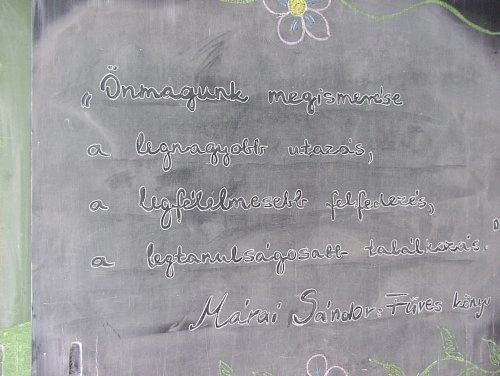 „Önmagunk megismerése
a legnagyobb utazás,
a legfélelmesebb felfedezés,
a legtanulságosabb találkozás."
Márai Sándor: Füves könyv